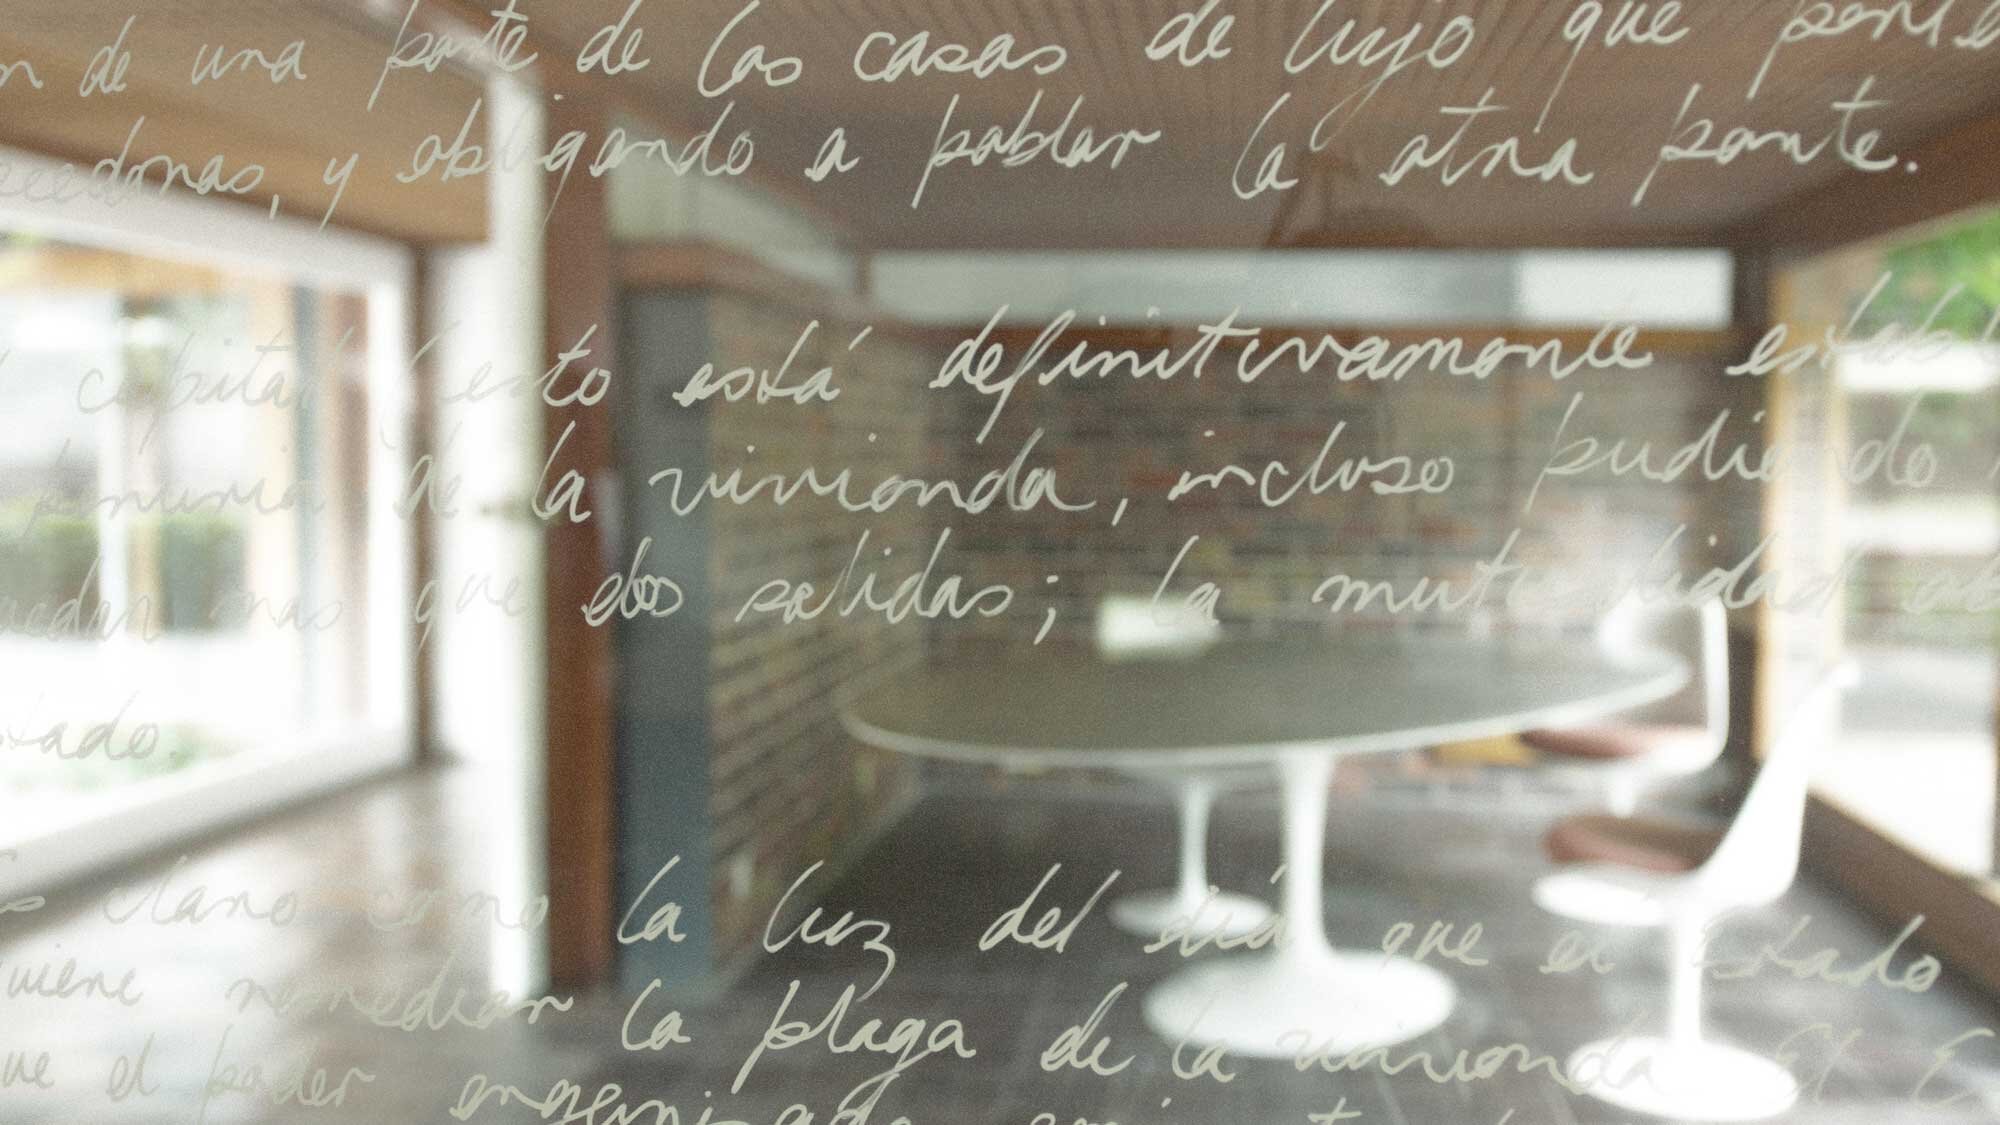 n de una parte de las casas de lujo que perte
eedoras, y obligando a poblar la otra parte.
capital (esto está definitivamente establ
penuria de la vivienda, incluso pudiendo
uedan mas que dos salidas; la mutualidad ob
stado.
s claro como la luz del día que el Estado
quiere remediar la plaga de la vivienda. El E
ue el poder organizado